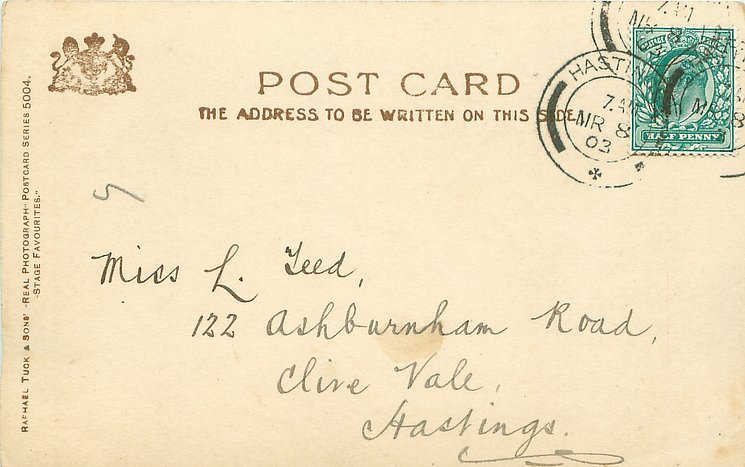 POST CARD
THE ADDRESS TO BE WRITTEN ON THIS SIDE
HASTIN
7.AM
MR 8
03
HALF PENNY
5
Miss L. Teed,
122 Ashburnham Road,
Clive Vale,
Hastings.
RAPHAEL TUCK & SONS' "REAL PHOTOGRAPH" POSTCARD SERIES 5004.
"STAGE FAVOURITES."